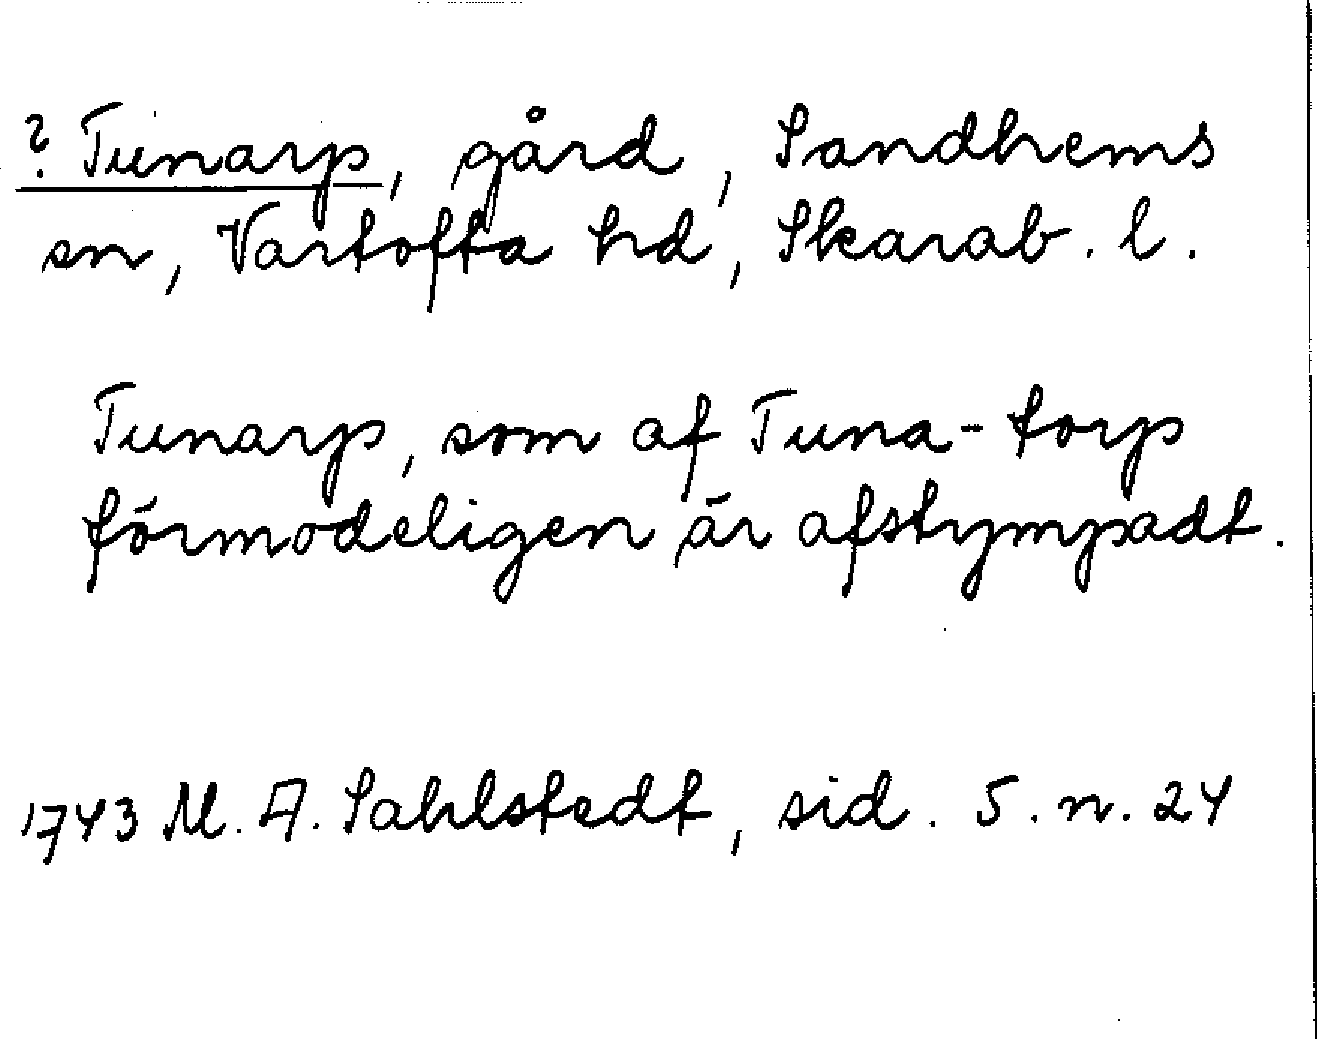 ? Tunarp, gård, Sandhems
sn, Vartofta hd, Skarab. l.
Tunarp, som af Tuna-torp
förmodeligen är afstympadt.
1743 M. A. Sahlstedt, sid. 5. n. 24